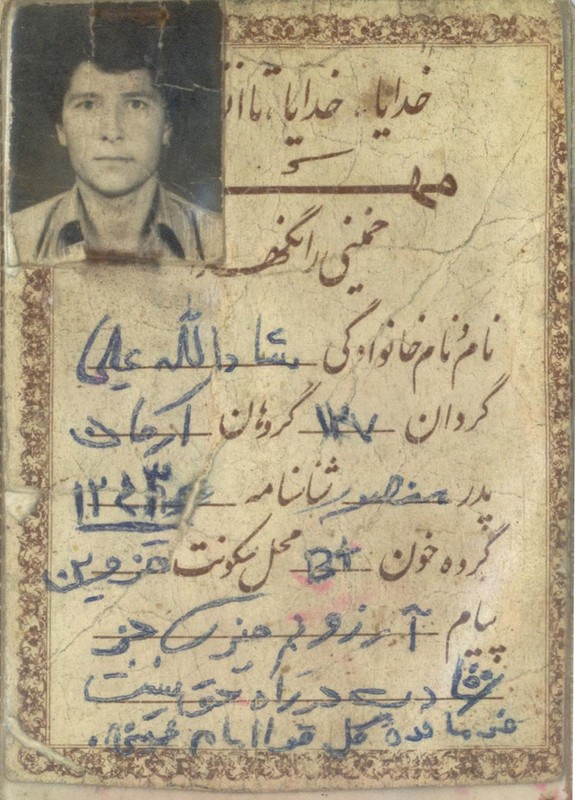 خدایا، خدایا، تا
خمینی را نگهدار
نام و نام خانوادگی شاداله علی
گردان ۱۲۷ گروهان ارکان
پدر منصور شناسنامه
گروه خون B+ محل سکونت قزوین
پیام آرزویم چیزی جز
شهادت در راه حق نیست
فرمانده کل قوا امام خمینی.